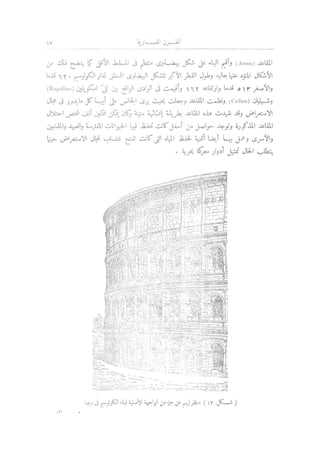 الطـرز المعـمارية ١٧
المقاعد (Arena) وأقيم البناء على شكل بيضاوى منتظم فى المسقط الأفقى كما يتضح ذلك من
الأشكال المنوّه عنها بعاليه وطول القطر الأكبر للشكل البيضاوى المطلق لدار الكولوسيوم ٦٢٠ قدما
والأصغر ٥١٣ قدما وارتفاعه ١٦٢ وأقيمت فى الوادى الواقع بين تلى اسكويلين (Esquiline)
وشيليان (Celian) ونظمت المقاعد وجعلت بحيث يرى الجالس على أيها كل مايدور فى مجال
الاستعراض وقد شيدت هذه المقاعد بطريقة إنشائية متينة وكان يمكن ثمانين ألف شخص احتلال
المقاعد المذكورة وتوجد حواصل من أسفل كانت تحفظ فيها الحيوانات المفترسة والعبيد والمذنبين
والأسرى وعمل بها أيضا أقنية لحفظ المياه التى كانت تفتح لتنساب لمجال الاستعراض حينما
يتطلب الحال تمثيل أدوار معركة بحرية .
( شـكل ١٢ ) منظر يرسم عن جزء من الواجهة الأصلية لبناء الكولوسيوم فى روما